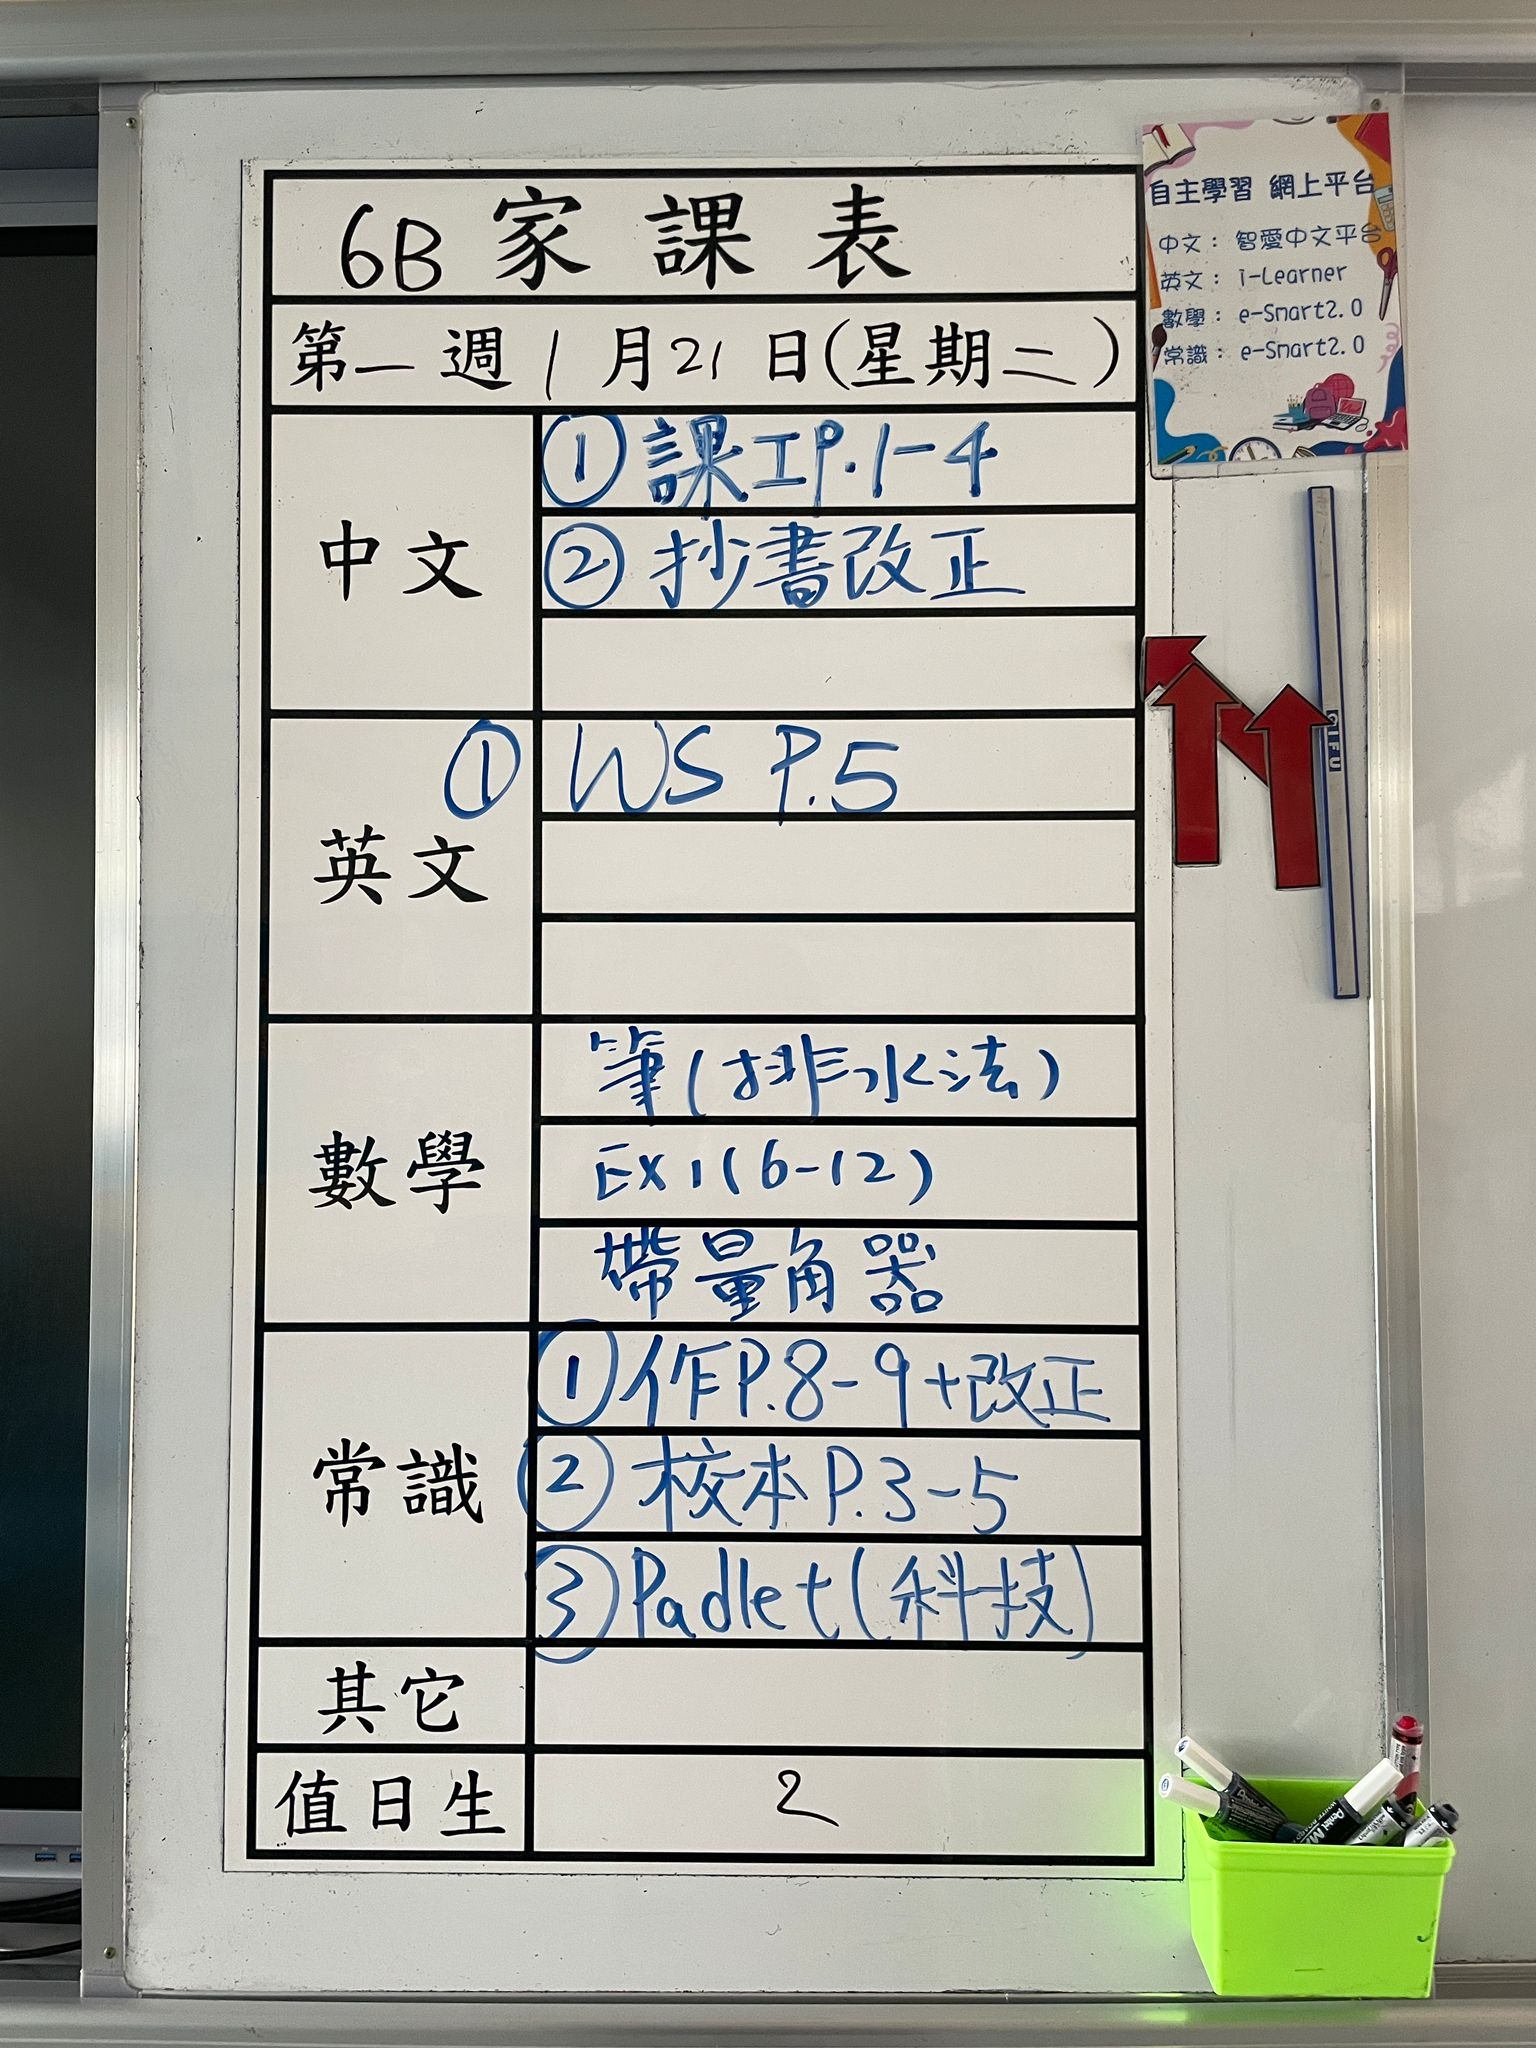 6B 家課表
第一週 1月21日(星期二)
中文
① 課工P.1-4
② 抄書改正
英文
① WS P.5
數學
筆(排水法)
Ex1(6-12)
帶量角器
常識
① 作P.8-9+改正
② 校本P.3-5
③ Padlet(科技)
其它
值日生
2
自主學習 網上平台
中文： 智愛中文平台
英文： i-Learner
數學： e-Smart2.0
常識： e-Smart2.0